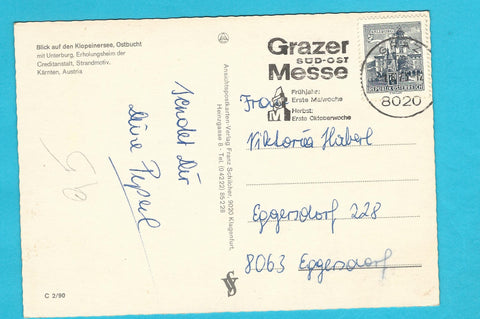 Blick auf den Klopeinersee, Ostbucht
mit Unterburg, Erholungsheim der
Creditanstalt, Strandmotiv.
Kärnten, Austria
sendet Dir
Deine
C 2/90
Ansichtspostkarten-Verlag Franz Schilcher, 9020 Klagenfurt,
Herrengasse 8 - Tel. (04222) 85228
Grazer
SÜD-OST
Messe
Frühjahr:
Erste Maiwoche
Herbst:
Erste Oktoberwoche
REPUBLIK ÖSTERREICH
8020
Frau
Viktoria Haberl
Eggersdorf 228
8063 Eggersdorf